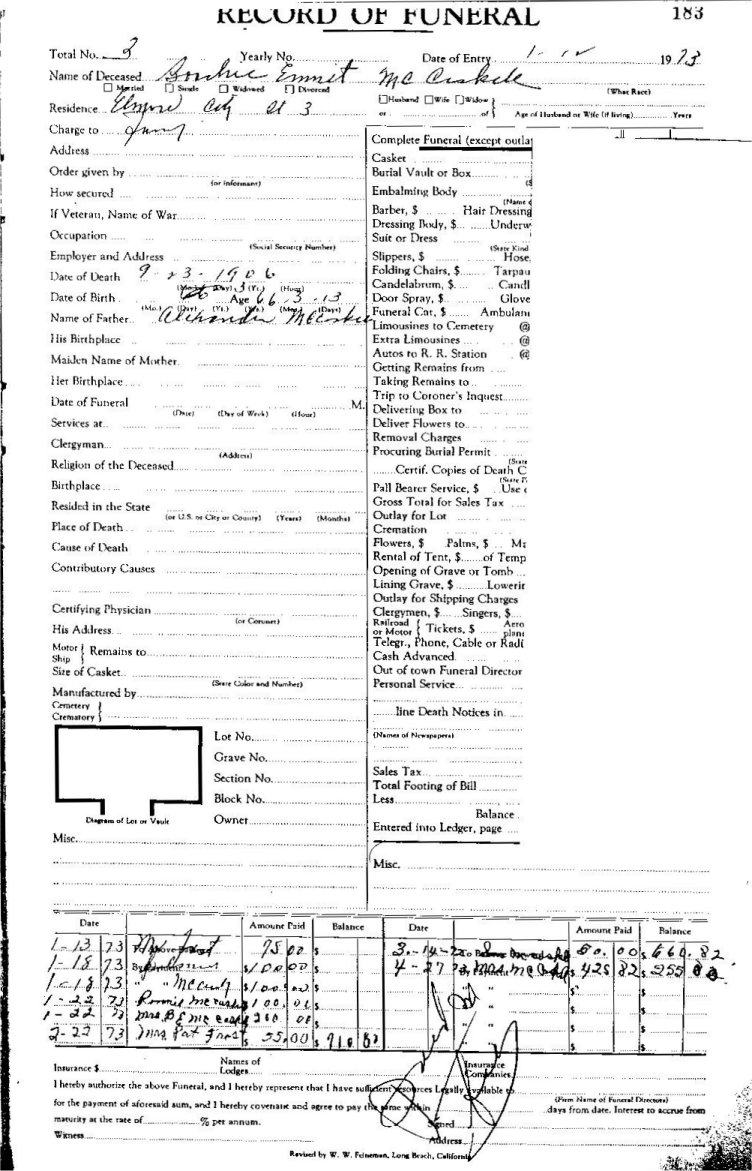 RECORD OF FUNERAL 183
Total No. 3 Yearly No. Date of Entry 1-12 1973
Name of Deceased Emmet Mc
Married Single Widowed Divorced
Husband Wife Widow
(What Race)
or of Age of Husband or Wife (if living) Years
Residence Elmore City Rt 3
Charge to
Address
Order given by
(or informant)
How secured
If Veteran, Name of War
Occupation
(Social Security Number)
Employer and Address
Date of Death 9-23-1906
(Mo.) (Day) (Yr.) (Hour)
Date of Birth Age 66-3-13
(Mo.) (Day) (Yr.) (Yrs.) (Mos.) (Days)
Name of Father
His Birthplace
Maiden Name of Mother
Her Birthplace
Date of Funeral M.
(Date) (Day of Week) (Hour)
Services at
Clergyman
(Address)
Religion of the Deceased
Birthplace
Resided in the State
(or U.S. or City or County) (Years) (Months)
Place of Death
Cause of Death
Contributory Causes
Certifying Physician
(or Coroner)
His Address
Motor Ship } Remains to
Size of Casket
(State Color and Number)
Manufactured by
Cemetery
Crematory
Lot No.
Grave No.
Section No.
Block No.
Owner
Diagram of Lot or Vault
Misc.
Complete Funeral (except outla
Casket
Burial Vault or Box
Embalming Body
(Name
Barber, $ Hair Dressing
Dressing Body, $ Underw
Suit or Dress
(State Kind
Slippers, $ Hose,
Folding Chairs, $ Tarpau
Candelabrum, $ Candl
Door Spray, $ Glove
Funeral Car, $ Ambulan
Limousines to Cemetery @
Extra Limousines @
Autos to R. R. Station @
Getting Remains from
Taking Remains to
Trip to Coroner's Inquest
Delivering Box to
Deliver Flowers to
Removal Charges
Procuring Burial Permit
(State
Certif. Copies of Death C
(State
Pall Bearer Service, $ Use
Gross Total for Sales Tax
Outlay for Lot
Cremation
Flowers, $ Palms, $ Ma
Rental of Tent, $ of Temp
Opening of Grave or Tomb
Lining Grave, $ Lowerin
Outlay for Shipping Charges
Clergymen, $ Singers, $
Railroad or Motor { Tickets, $ Aero plane
Telegr., Phone, Cable or Radi
Cash Advanced
Out of town Funeral Director
Personal Service
line Death Notices in
(Names of Newspapers)
Sales Tax
Total Footing of Bill
Less
Balance
Entered into Ledger, page
Misc.
Date Amount Paid Balance Date Amount Paid Balance
1-13 73 75 00 $ 3-14- 50.00 $ 660.82
1-18 73 $100 00 $ 4-27 73 Mrs $ 425 82 $ 255
1-18 73 " " $100 00 $
1-22 73 100 $
1-22 73 Mrs. B E Mc 200 00 $
2-22 73 Mrs Pat Frost $ 55.00 $ 710
Insurance $ Names of Lodges Insurance Companies
I hereby authorize the above Funeral, and I hereby represent that I have sufficient resources Legally available to
(Firm Name of Funeral Directors)
for the payment of aforesaid sum, and I hereby covenant and agree to pay the same within days from date. Interest to accrue from
maturity at the rate of % per annum. Signed
Witness Address
Revised by W. W. Feineman, Long Beach, California